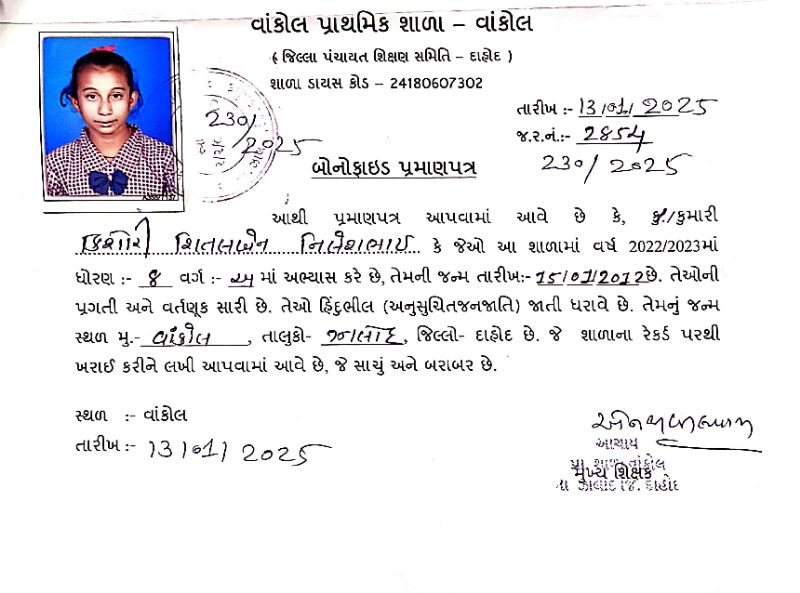 વાંકોલ પ્રાથમિક શાળા – વાંકોલ
( જિલ્લા પંચાયત શિક્ષણ સમિતિ – દાહોદ )
શાળા ડાયસ કોડ – 24180607302
તારીખ :- 13/01/2025
જ.ર.નં.:- 2854
230/2025
230/2025
બોનોફાઇડ પ્રમાણપત્ર
આથી પ્રમાણપત્ર આપવામાં આવે છે કે, કુ./કુમારી
કિશોરી શિતલબેન નિલેશભાઇ કે જેઓ આ શાળામાં વર્ષ 2022/2023માં
ધોરણ :- 8 વર્ગ :- અ માં અભ્યાસ કરે છે, તેમની જન્મ તારીખ:- 15/01/2012 છે. તેઓની
પ્રગતી અને વર્તણૂક સારી છે. તેઓ હિંદુભીલ (અનુસુચિતજનજાતિ) જાતી ધરાવે છે. તેમનું જન્મ
સ્થળ મુ.- વાંકોલ , તાલુકો- ઝાલોદ, જિલ્લો- દાહોદ છે. જે શાળાના રેકર્ડ પરથી
ખરાઈ કરીને લખી આપવામાં આવે છે, જે સાચું અને બરાબર છે.
સ્થળ :- વાંકોલ
તારીખ :- 13/01/2025
આચાર્ય
પ્રા. શાળા વાંકોલ
મુખ્ય શિક્ષક
તા ઝાલોદ જિ. દાહોદ